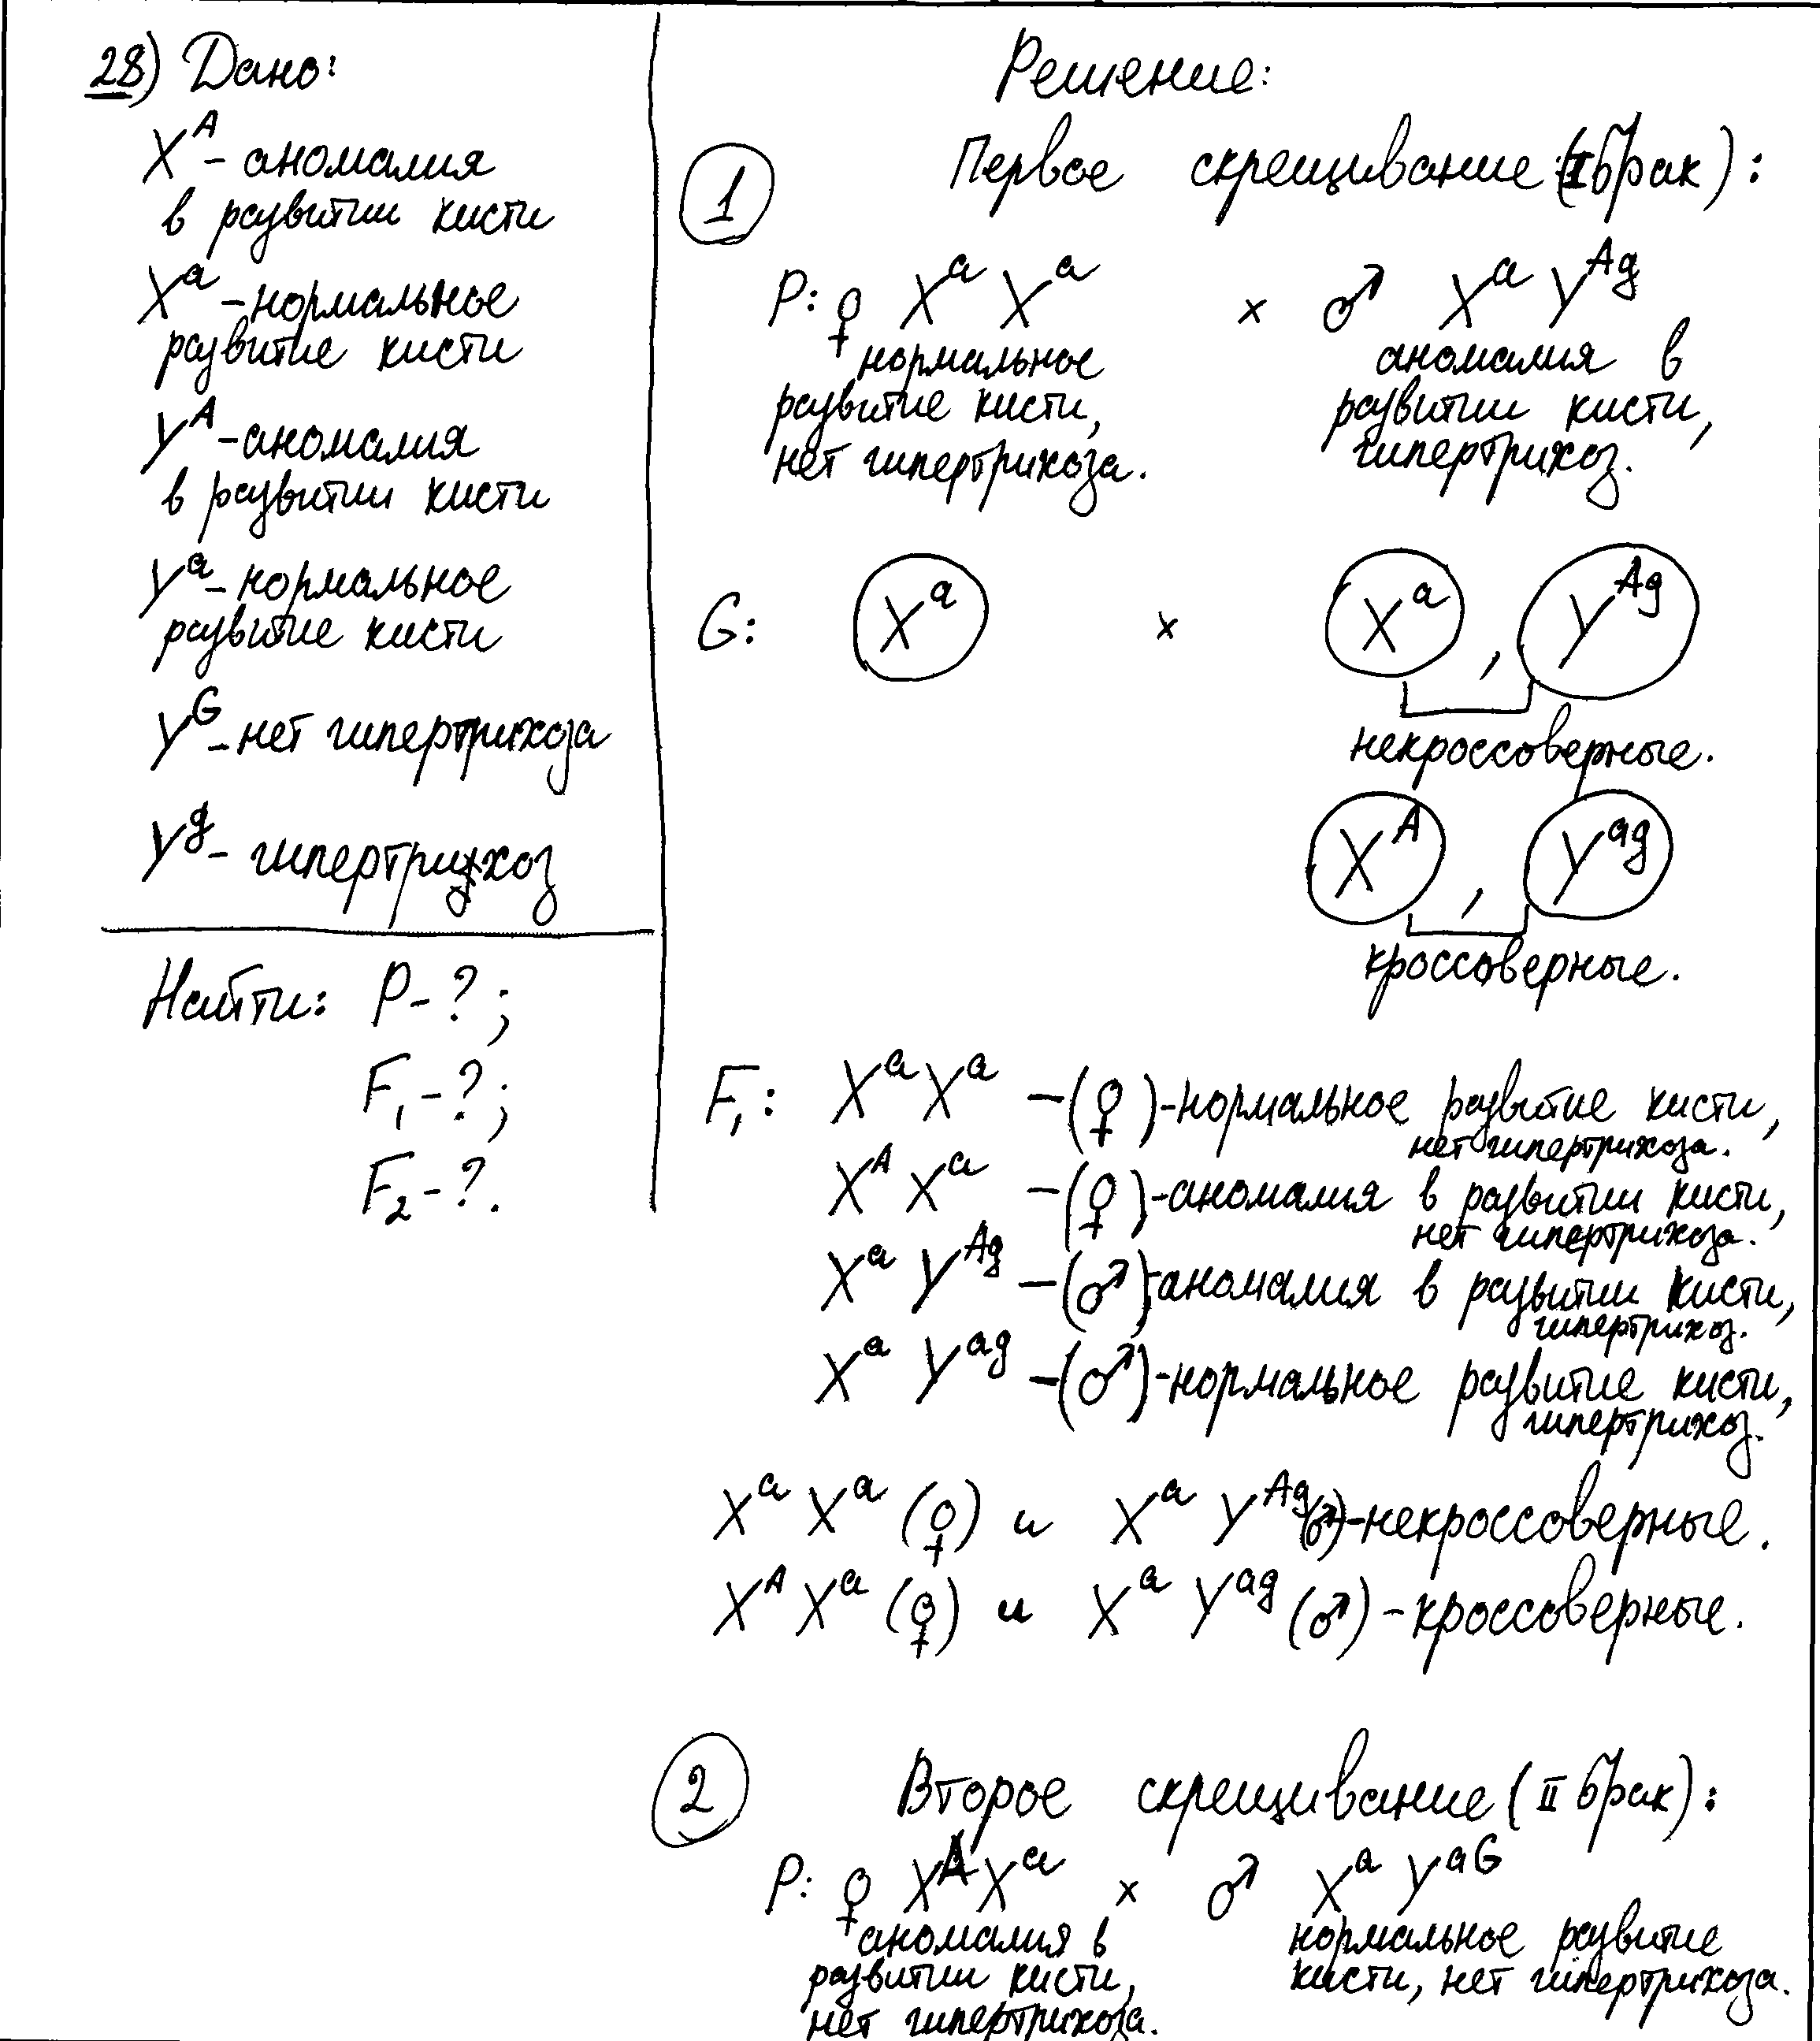 28) Дано:
X^A - аномалия
в развитии кисти
X^a - нормальное
развитие кисти
Y^A - аномалия
в развитии кисти
Y^a - нормальное
развитие кисти
Y^G - нет гипертрихоза
Y^g - гипертрихоз
Найти: P - ?;
F₁ - ?;
F₂ - ?.
Решение:
1 Первое скрещивание (I брак):
P: ♀ X^a X^a × ♂ X^a Y^Ag
нормальное
развитие кисти,
нет гипертрихоза.
аномалия в
развитии кисти,
гипертрихоз.
G: X^a × X^a , Y^Ag
некроссоверные.
X^A , Y^ag
кроссоверные.
F₁: X^a X^a - (♀) - нормальное развитие кисти,
нет гипертрихоза.
X^A X^a - (♀) - аномалия в развитии кисти,
нет гипертрихоза.
X^a Y^Ag - (♂) - аномалия в развитии кисти,
гипертрихоз.
X^a Y^ag - (♂) - нормальное развитие кисти,
гипертрихоз.
X^a X^a (♀) и X^a Y^Ag (♂) - некроссоверные.
X^A X^a (♀) и X^a Y^ag (♂) - кроссоверные.
2 Второе скрещивание (II брак):
P: ♀ X^A X^a × ♂ X^a Y^aG
аномалия в
развитии кисти,
нет гипертрихоза.
нормальное развитие
кисти, нет гипертрихоза.